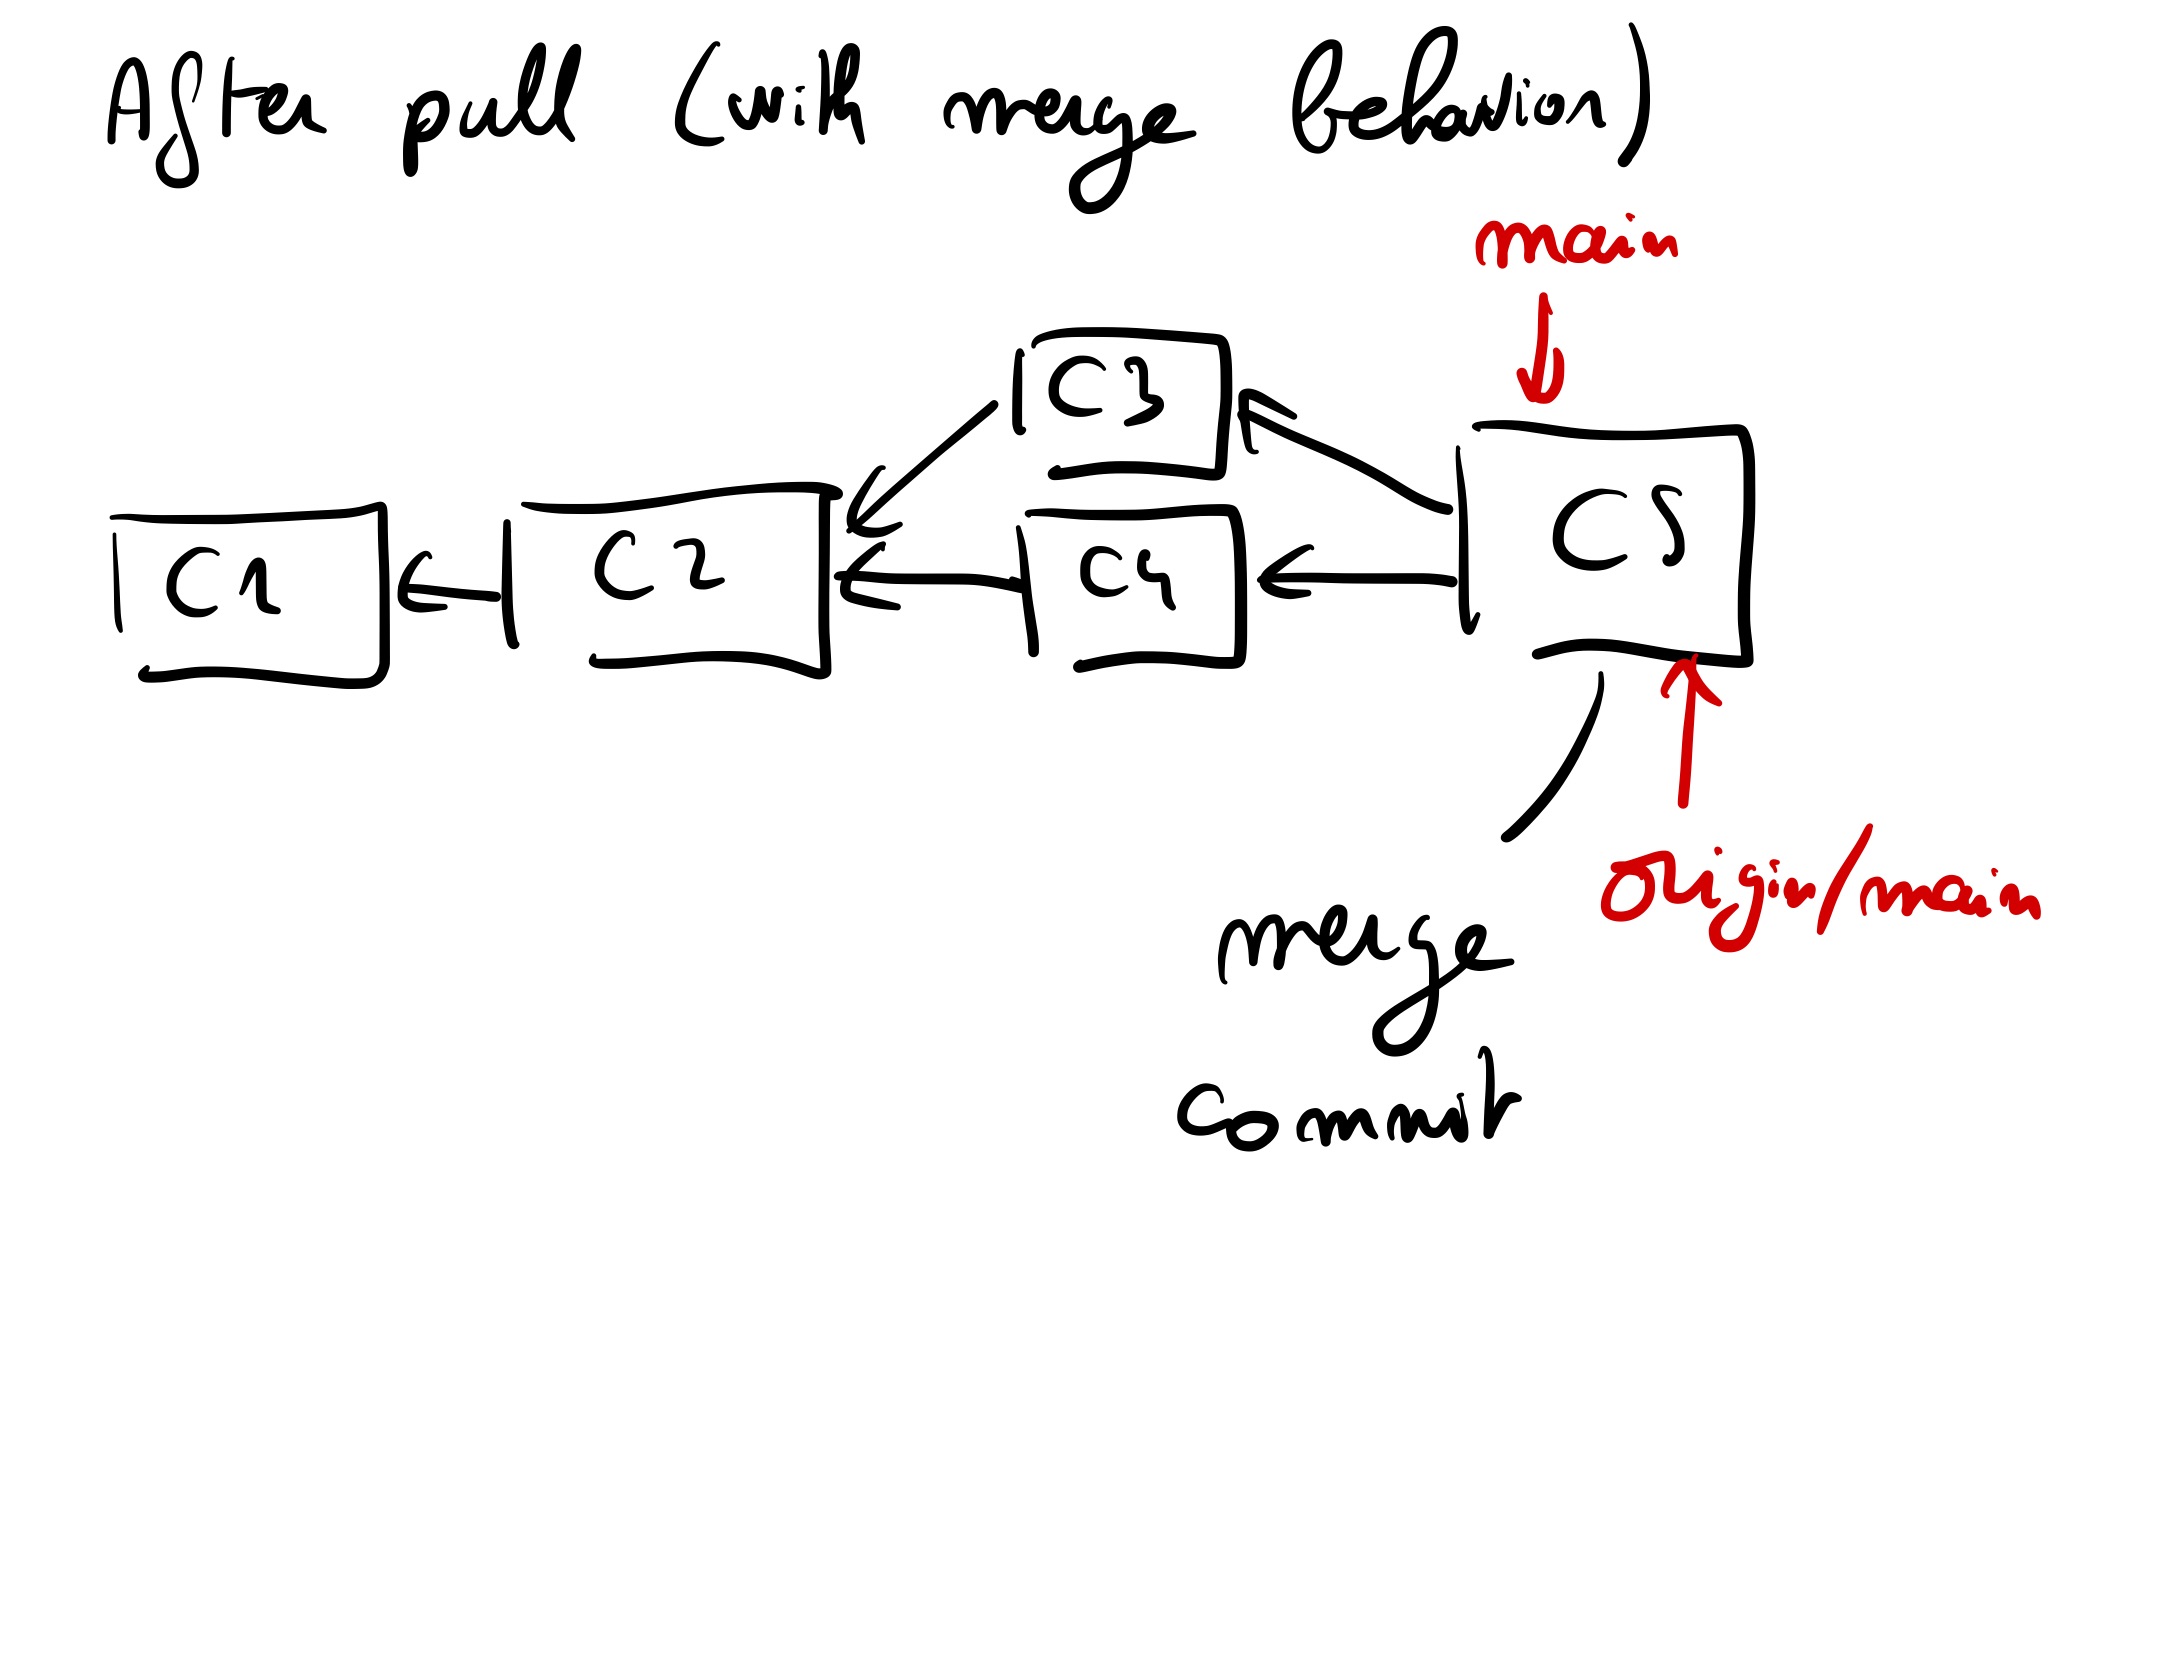 After pull (with merge behavior)
main
C3
C1
C2
C4
C5
origin/main
merge
commit